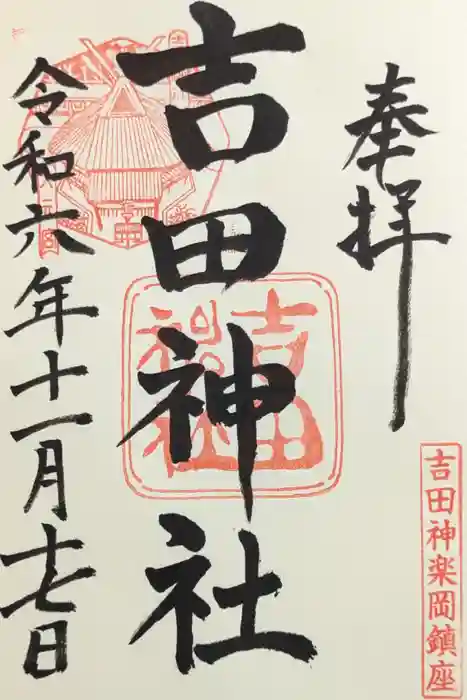 奉拝
吉田神楽岡鎮座
吉田神社
吉田
神社
令和六年十一月十七日